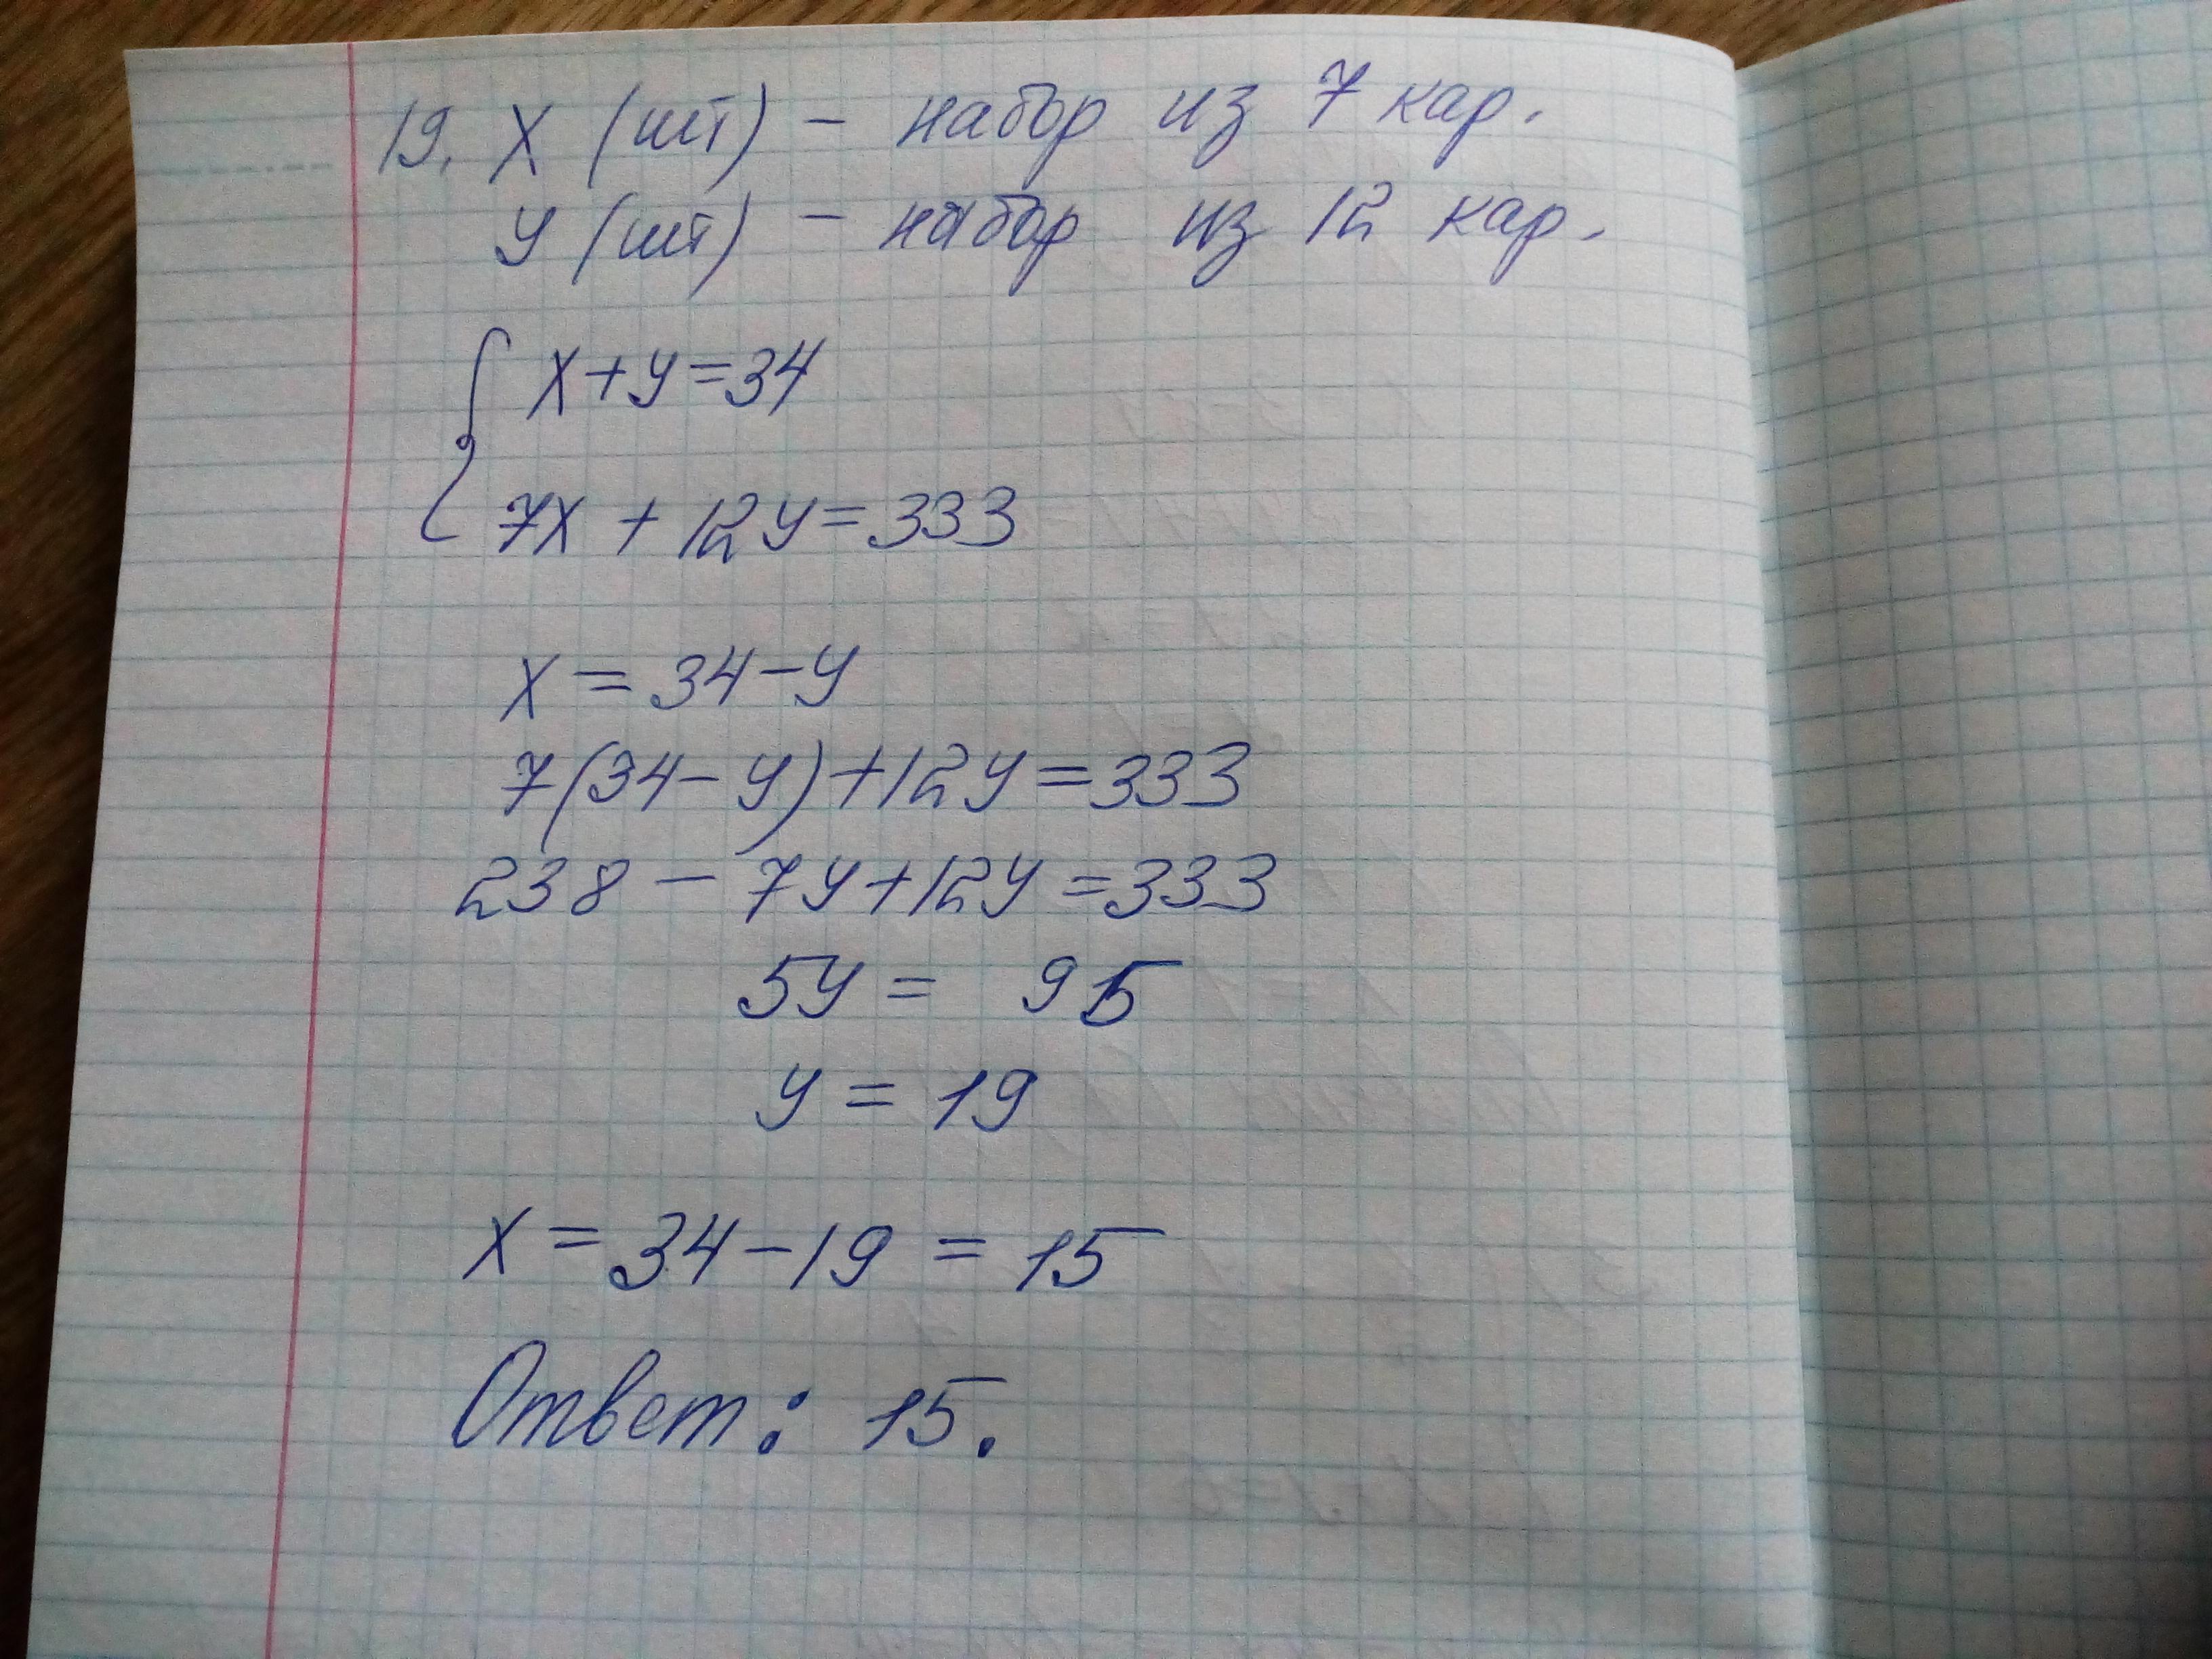 19. X (шт) - набор из 7 кар.
У (шт) - набор из 12 кар.
{ X+У=34
7X + 12У=333
X = 34-У
7(34-У)+12У=333
238 - 7У+12У=333
5У = 95
У = 19
X = 34-19 = 15
Ответ: 15.